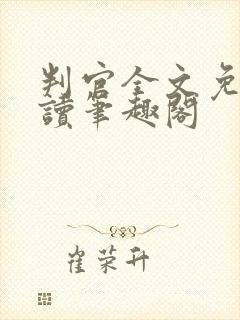 判官全文免
讀筆趣閣
崔荣升